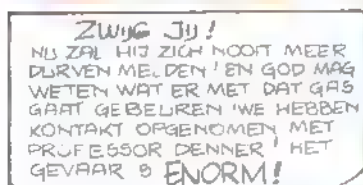 ZWIJG JIJ!
NU ZAL HIJ ZICH NOOIT MEER
DURVEN MELDEN! EN GOD MAG
WETEN WAT ER MET DAT GAS
GAAT GEBEUREN! WE HEBBEN
KONTAKT OPGENOMEN MET
PROFESSOR DENNER! HET
GEVAAR IS ENORM!